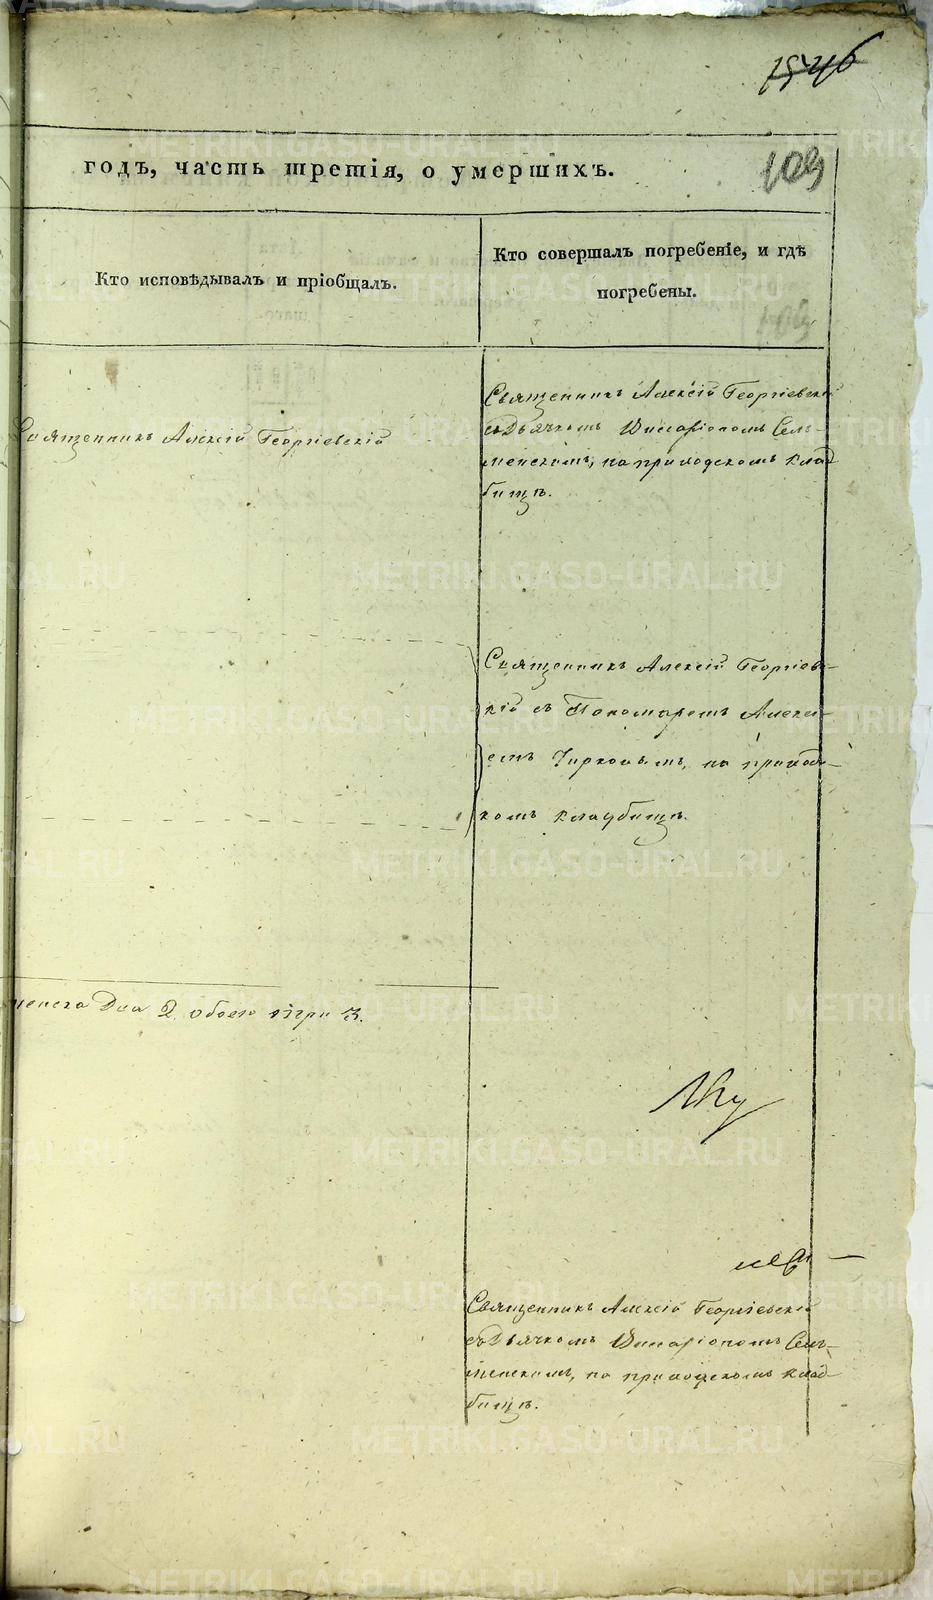 годъ, часть третія, о умершихъ.
109
Кто исповѣдывалъ и пріобщалъ.
Кто совершалъ погребеніе, и гдѣ
погребены.
Священникъ Алексій Георгіевскій
Священникъ Алексій Георгіевскій
съ Дьячкомъ Иларіономъ Сель-
менскомъ, на приходскомъ клад
бищѣ.
Священникъ Алексій Георгіевс-
кій съ Пономаремъ Алексѣ-
емъ Чирковымъ, на приход-
комъ кладбищѣ.
женска Два 2. обоего три 3.
Священникъ Алексій Георгіевскій
съ Дьячкомъ Иларіономъ Сель-
менскимъ, на приходскомъ клад-
бищѣ.
METRIKI.GASO-URAL.RU